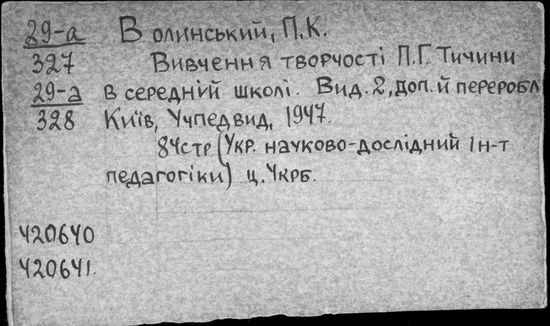 29-а Волинський, П.К.
327 Вивчення творчості П.Г. Тичини
29-а в середній школі. Вид. 2, доп. й переробл
328 Київ, Учпедвид, 1947.
84стр (Укр. науково-дослідний ін-т
педагогіки) ц. 4крб.
420640
420641.